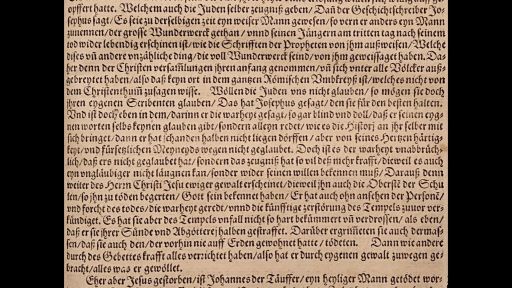 opffert hatte. Welchem auch die Juden selber zeugnis geben/ Dañ der Geschichtschreiber Jo-
sephus sagt/ Es seie zu derselbigen zeit eyn weiser Mann gewesen/ so vern er anders eyn Mann
zunennen/ der grosse Wunderwerck gethan/ vnnd seinen Jüngern am tritten tag nach seinem
tod wider lebendig erschinen ist/ wie die Schrifften der Propheten von jhm außweisen/ Welche
dises vñ andere vnzähliche ding/ die voll Wunderwerck seind/ von jhm geweissaget haben. Da-
her denn der Christen versamlungen jhren anfang genommen/ vñ sich vnter alle Völcker auß-
gebreytet haben/ also daß keyn ort in dem gantzen Römischen Vmbkreyß ist/ welches nicht von
dem Christenthuм̃ zusagen wisse. Wöllen die Juden vns nicht glauben/ so mögen sie doch
jhren eygenen Scribenten glauben/ Das hat Josephus gesagt/ den sie für den besten halten.
Vnd ist doch eben in dem/ darinn er die warheyt gesagt/ so gar blind vnd doll/ daß er seinen eyge-
nen worten selbs keynen glauben gibt/ sondern alleyn redet/ wie es die Histori an jhr selber mit
sich bringet/ dann er hat schanden halben nicht liegen dörffen/ aber von seines Hertzen härtig-
keyt/ vnd fürsetzlichen Meyneyds wegen nicht geglaubet. Doch ist es der warheyt vnabbrüch-
lich/ daß ers nicht geglaubet hat/ sondern das zeugnuß hat so vil deß mehr krafft/ dieweil es auch
eyn vngläubiger nicht längnen kan/ sonder wider seinen willen bekennen muß/ Darauß denn
weiter des Herrn Christi Jesu ewiger gewalt erscheinet/ dieweil jhn auch die Oberste der Schu-
len/ so jhn zu töden begerten/ Gott sein bekennet haben/ Er hat auch ohn ansehen der Personẽ/
vnd forcht des todes/ die warheyt gerede/ vnnd die künfftige zerstörung des Tempels zuuor ver-
kündiget. Es hat sie aber des Tempels vnfall nicht so hart bekümmert vñ verdrossen/ als eben/
daß er sie jhrer Sünde vnd Abgötterej halben gestraffet. Darüber ergrimmeten sie auch dermas-
sen/ daß sie auch den/ der vorhin nie auff Erden gewohnet hatte/ tödeten. Dann wie andere
durch des Gebettes krafft alles verzichtet haben/ also hat er durch eygenen gewalt zuwegen ge-
bracht/ alles was er gewöllet.
Eher aber Jesus gestorben/ ist Johannes der Täuffer/ eyn heyliger Mann getödet wor-